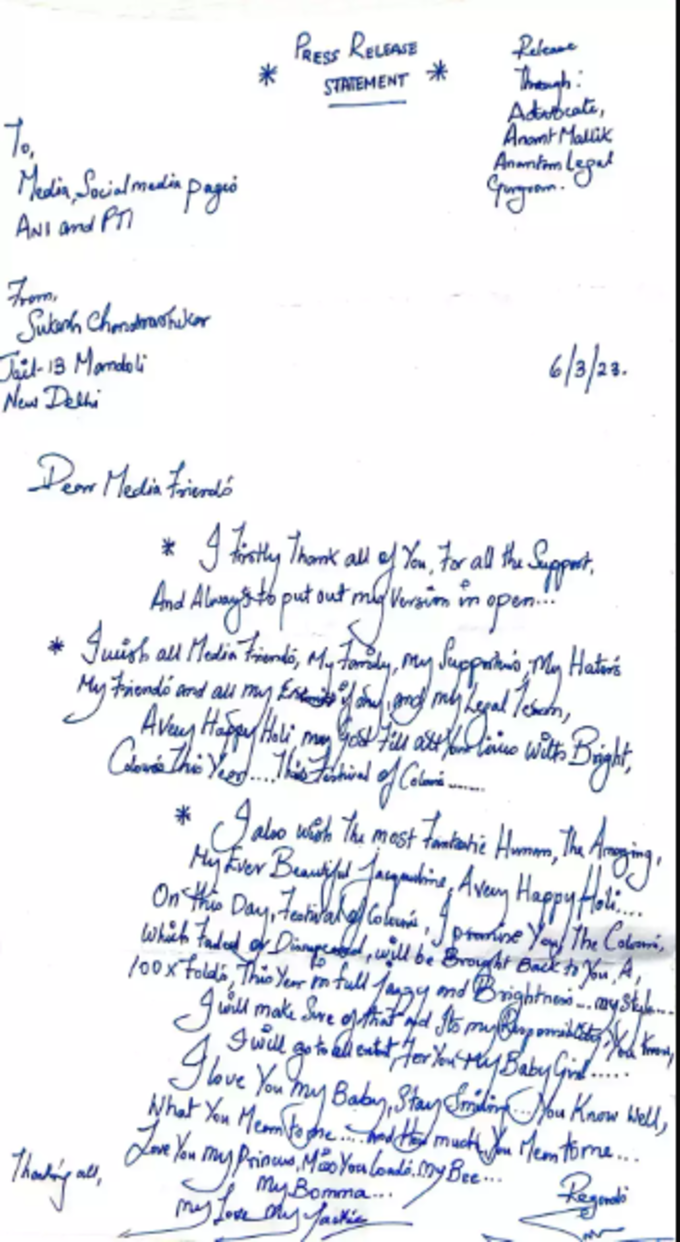 PRESS RELEASE
* STATEMENT *
Release
Through:
Advocate,
Anant Mallik
Anantam Legal
Gurgram.
To,
Media, Social media pages
ANI and PTI
From,
Sukash Chandrashekar
Jail-13 Mandoli
New Delhi
6/3/23.
Dear Media Friends
* I Firstly Thank all of You, For all the Support,
And Always to put out my Version in open...
* I wish all Media Friends, My Family, my Supporters, My Haters
My Friends and all my if any, and my Legal Team,
A Very Happy Holi may God Fill all Your Lives With Bright,
Colours This Year.... This Festival of Colours......
* I also wish The most Fantastic Human, The Amazing,
My Ever Beautiful Jacqueline, A Very Happy Holi....
On This Day, Festival of Colours, I promise You, The Colours,
Which Faded or Disappeared, will be Brought Back to You, A,
100 x Folds, This Year in full Jazzy and Brightness... my Style....
I will make Sure of that and Its my Responsibility, You Know,
I will go to all extent For You My Baby Girl.....
I love You my Baby, Stay Smiling... You Know Well,
What You Mean to me.... and How much You Mean to me...
Love You my Princess, Miss You Loads, My Bee...
My Bomma...
My Love My Jackie
Thanking all,
Regards